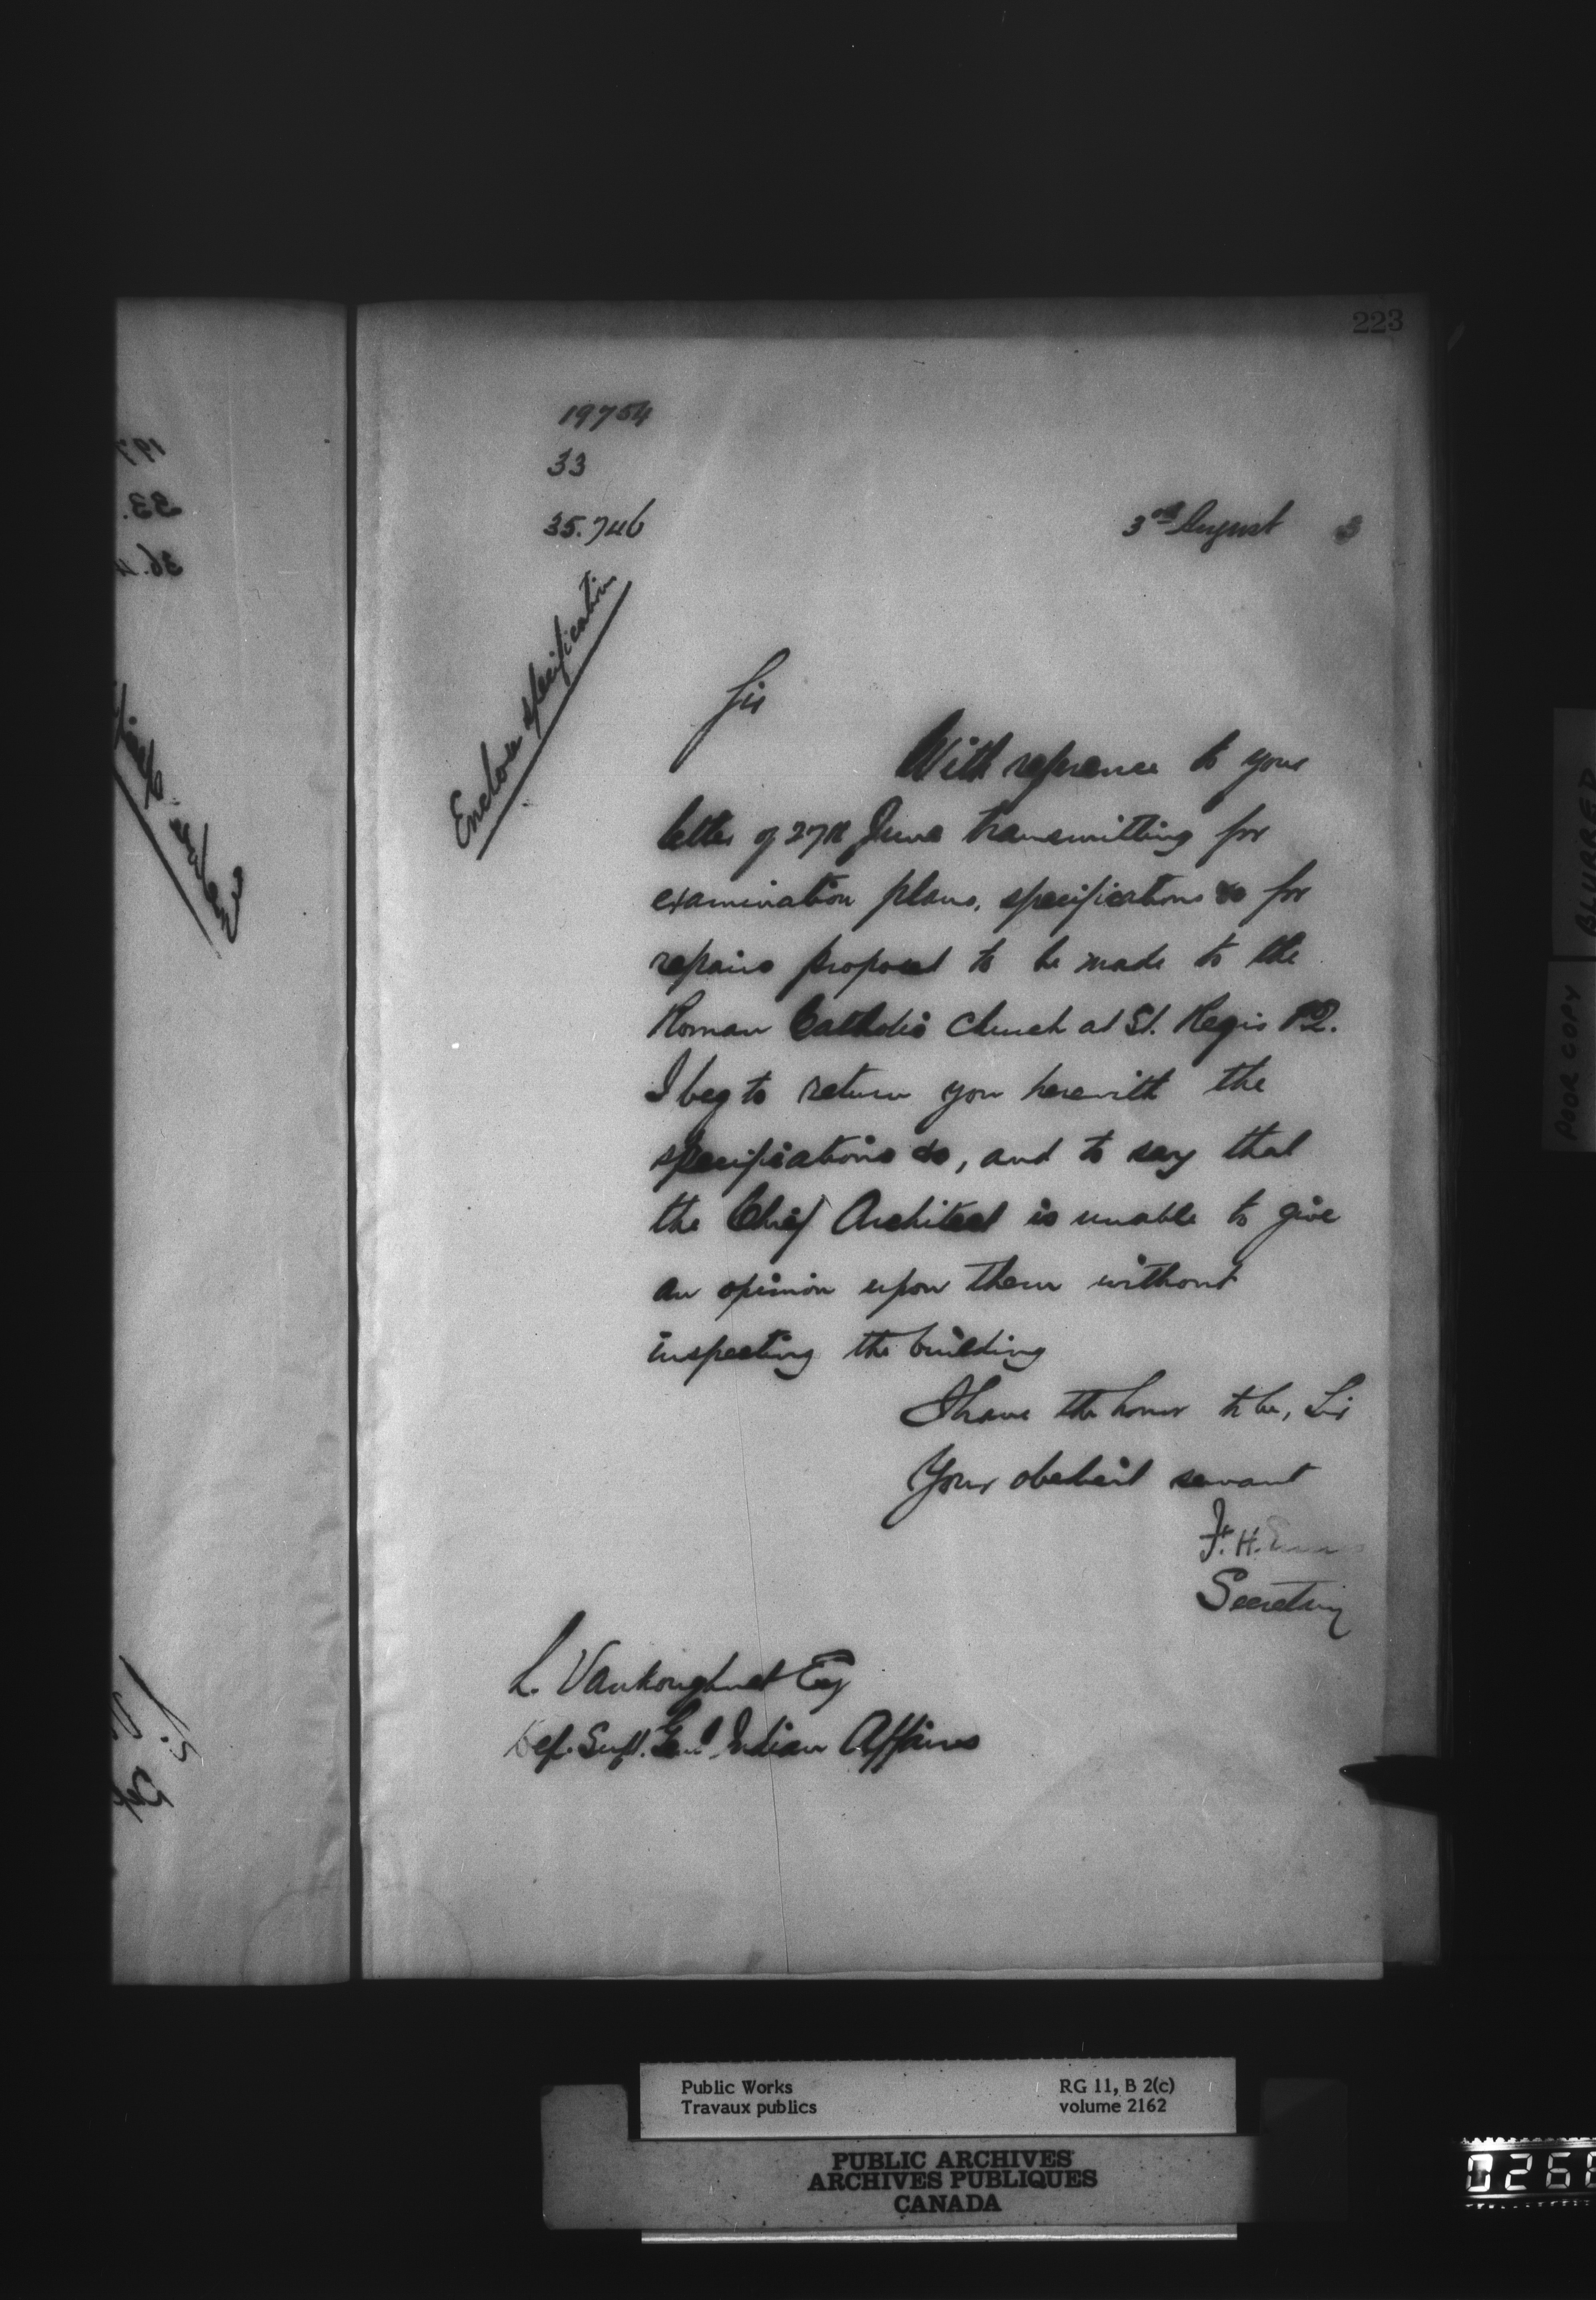 223
19754
33
35.746
3rd August 3
Enclose specification
Sir
With reference to your
letter of 27th June transmitting for
examination plans, specifications &c for
repairs proposed to be made to the
Roman Catholic Church at St. Regis P2.
I beg to return you herewith the
specifications &c, and to say that
the Chief Architect is unable to give
an opinion upon them without
inspecting the building
I have the honor to be, Sir
Your obedient servant
F. H.
Secretary
L. Vankoughnet Esq
Dep. Supt. Genl Indian Affairs
BLURRED
POOR COPY
Public Works
Travaux publics
RG 11, B 2(c)
volume 2162
PUBLIC ARCHIVES
ARCHIVES PUBLIQUES
CANADA